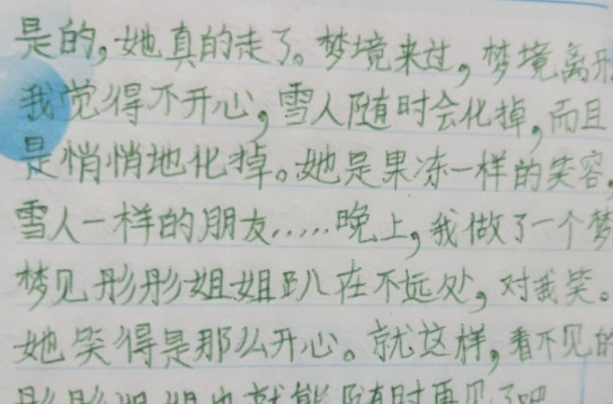 是的,她真的走了。梦境来过,梦境离开
我觉得不开心,雪人随时会化掉,而且
是悄悄地化掉。她是果冻一样的笑容,
雪人一样的朋友.....晚上,我做了一个梦
梦见彤彤姐姐趴在不远处,对我笑。
她笑得是那么开心。就这样,看不见的
彤彤姐姐也就能随时再见了吧